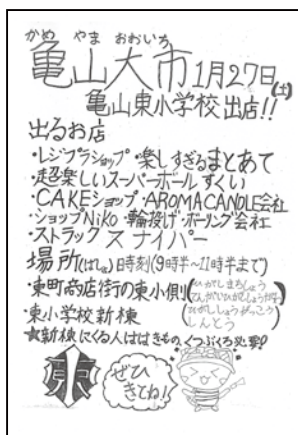 かめ やま おおいち
亀山大市 1月27日(土)
亀山東小学校 出店!!
出るお店
・レジプラショップ ・楽しすぎるまとあて
・超楽しいスーパーボールすくい
・CAKEショップ ・AROMACANDLE会社
・ショップNiko ・輪投げ ・ボーリング会社
・ストラックスナイパー
場所(ばしょ) 日時刻(9時半〜11時半まで)
・東町商店街の東小側
(ひがしまちしょうてんがいひがししょうがわ
・東小学校新棟
ひがししょうがっこうしんとう)
☆新棟にくる人ははきもの、くつぶくろ必要
東
ぜひきてね!